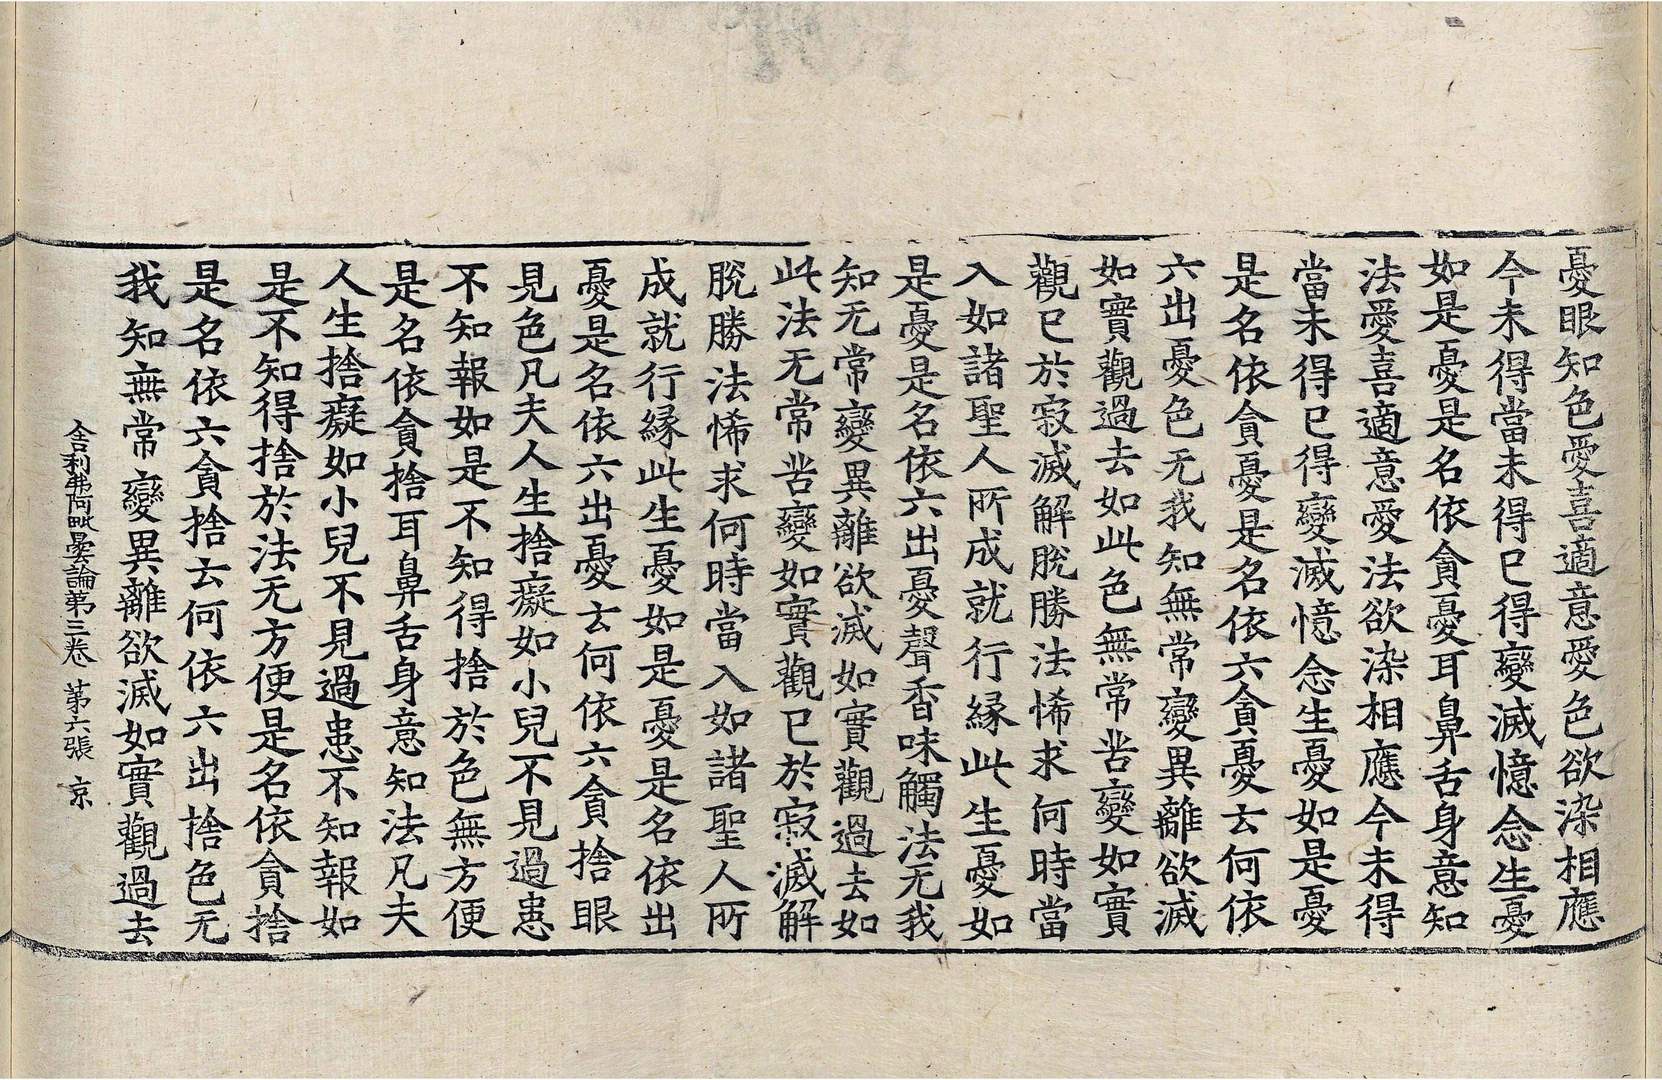 憂眼知色愛喜適意愛色欲染相應
今未得當未得已得變滅憶念生憂
如是憂是名依貪憂耳鼻舌身意知
法愛喜適意愛法欲染相應今未得
當未得已得變滅憶念生憂如是憂
是名依貪憂是名依六貪憂云何依
六出憂色无我知無常變異離欲滅
如實觀過去如此色無常苦變如實
觀已於寂滅解脫勝法悕求何時當
入如諸聖人所成就行緣此生憂如
是憂是名依六出憂聲香味觸法无我
知无常變異離欲滅如實觀過去如
此法无常苦變如實觀已於寂滅解
脫勝法悕求何時當入如諸聖人所
成就行緣此生憂如是憂是名依出
憂是名依六出憂云何依六貪捨眼
見色凡夫人生捨癡如小兒不見過患
不知報如是不知得捨於色無方便
是名依貪捨耳鼻舌身意知法凡夫
人生捨癡如小兒不見過患不知報如
是不知得捨於法无方便是名依貪捨
是名依六貪捨云何依六出捨色无
我知無常變異離欲滅如實觀過去
舍利弗阿毗曇論第三卷 第六張 京